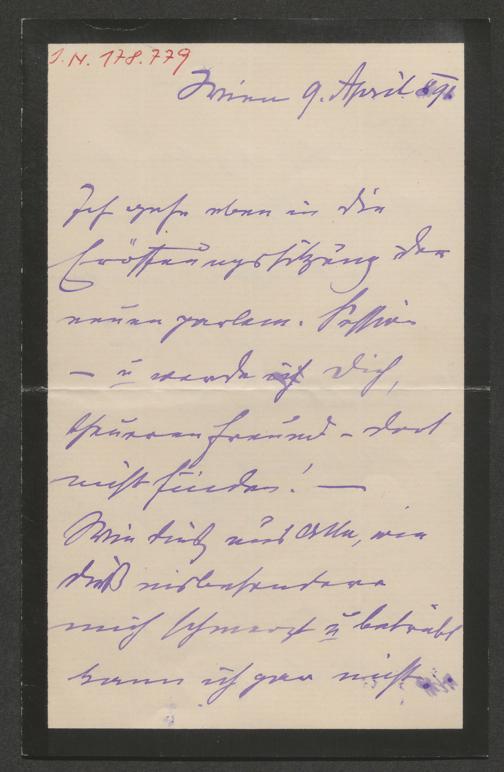 I.N. 178.779
Wien 9. April 891
Ich gehe eben in die
Eröffnungssitzung der
neuen parlam. Session
– u werde ich Dich,
theurer Freund – dort
nicht finden! –
Wie dieß uns Alle, wie
dieß insbesondere
mich schmerzt u betrübt
kann ich gar nicht